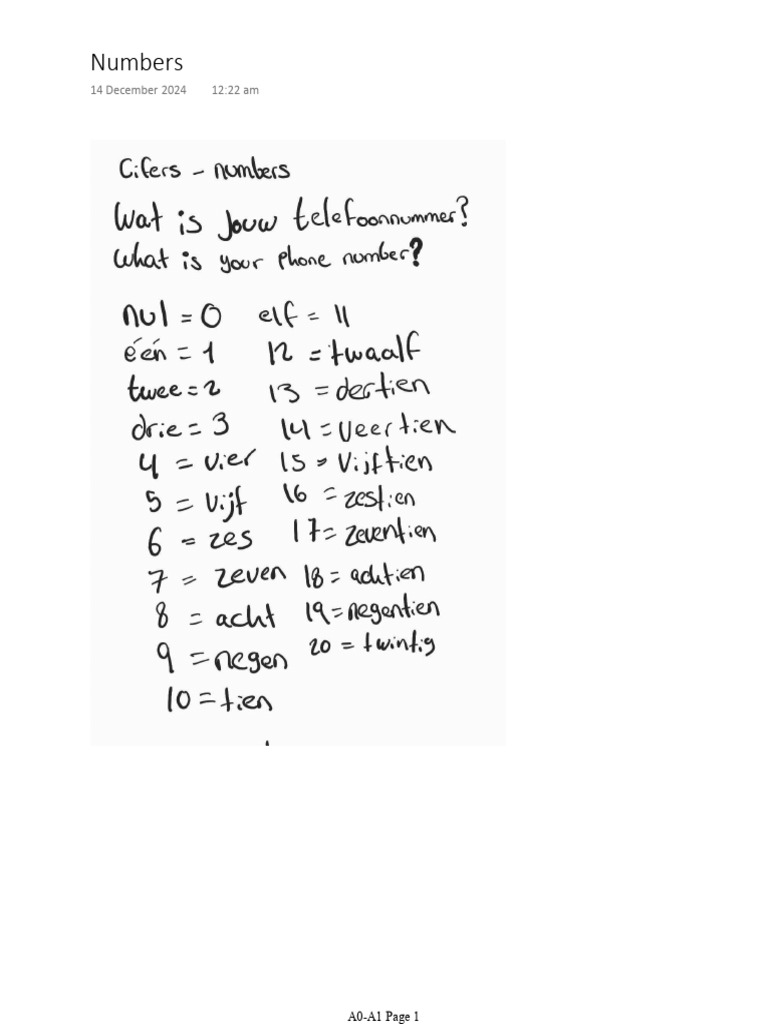 Numbers
14 December 2024 12:22 am
Cifers - numbers
Wat is jouw telefoonnummer?
What is your phone number?
nul = 0 elf = 11
één = 1 12 = twaalf
twee = 2 13 = dertien
drie = 3 14 = veertien
4 = vier 15 = vijftien
5 = vijf 16 = zestien
6 = zes 17 = zeventien
7 = zeven 18 = achtien
8 = acht 19 = negentien
9 = negen 20 = twintig
10 = tien
A0-A1 Page 1